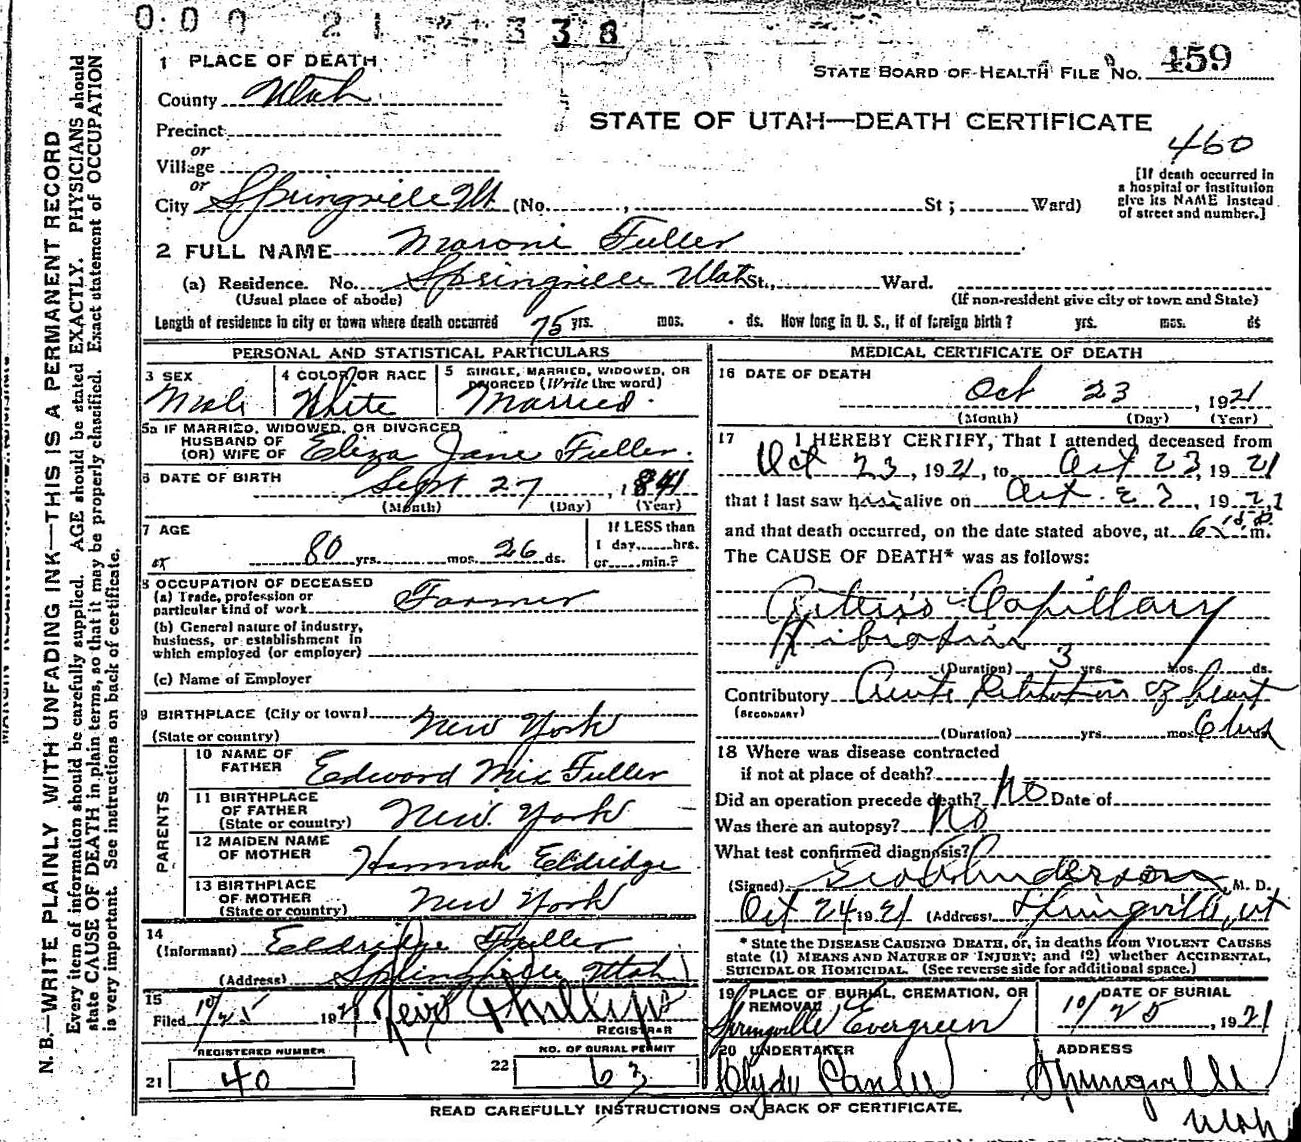 338
1 PLACE OF DEATH
STATE BOARD OF HEALTH FILE NO. 459
County Utah
STATE OF UTAH—DEATH CERTIFICATE
460
Precinct
or
Village
or
City Springville Ut. (No. , St ; Ward)
[If death occurred in
a hospital or institution
give its NAME instead
of street and number.]
2 FULL NAME Maroni Fuller
(a) Residence. No. Springville Utah St., Ward.
(Usual place of abode) (If non-resident give city or town and State)
Length of residence in city or town where death occurred 75 yrs. mos. ds. How long in U. S., if of foreign birth? yrs. mos. ds
PERSONAL AND STATISTICAL PARTICULARS
3 SEX 4 COLOR OR RACE 5 SINGLE, MARRIED, WIDOWED, OR
DIVORCED (Write the word)
Male White Married
5a IF MARRIED, WIDOWED, OR DIVORCED
HUSBAND OF
(OR) WIFE OF Eliza Jane Fuller.
6 DATE OF BIRTH Sept 27, 1841
(Month) (Day) (Year)
7 AGE If LESS than
80 yrs. mos. 26 ds. 1 day hrs.
or min.?
8 OCCUPATION OF DECEASED
(a) Trade, profession or
particular kind of work Farmer
(b) General nature of industry,
business, or establishment in
which employed (or employer)
(c) Name of Employer
9 BIRTHPLACE (City or town)
(State or country) New York
PARENTS
10 NAME OF
FATHER Edword Mix Fuller
11 BIRTHPLACE
OF FATHER
(State or country) New York
12 MAIDEN NAME
OF MOTHER Hannah Eldridge
13 BIRTHPLACE
OF MOTHER
(State or country) New York
14
(Informant) Eldridge Fuller
(Address) Springville Utah
15
Filed 10/25 1921 Phillips
REGISTRAR
REGISTERED NUMBER NO. OF BURIAL PERMIT
21 40 22 63
MEDICAL CERTIFICATE OF DEATH
16 DATE OF DEATH
Oct 23, 1921
(Month) (Day) (Year)
17 I HEREBY CERTIFY, That I attended deceased from
Oct 23, 1921, to Oct 23, 1921
that I last saw him alive on Oct. 23, 1921
and that death occurred, on the date stated above, at m.
The CAUSE OF DEATH* was as follows:
Arterio Capillary
Fibrosis
(Duration) 3 yrs. mos. ds.
Contributory Acute Dilitation of heart
(SECONDARY)
(Duration) yrs. mos.
18 Where was disease contracted
if not at place of death?
Did an operation precede death? No Date of
Was there an autopsy? No
What test confirmed diagnosis?
(Signed) Geo Anderson, M. D.
Oct 24 1921 (Address) Springville, Ut
* State the DISEASE CAUSING DEATH, or, in deaths from VIOLENT CAUSES
state (1) MEANS AND NATURE OF INJURY; and (2) whether ACCIDENTAL,
SUICIDAL OR HOMICIDAL. (See reverse side for additional space.)
19 PLACE OF BURIAL, CREMATION, OR
REMOVAL DATE OF BURIAL
Springville Evergreen 10/25, 1921
20 UNDERTAKER ADDRESS
Clyde Springville
Utah
READ CAREFULLY INSTRUCTIONS ON BACK OF CERTIFICATE.
N. B.—WRITE PLAINLY WITH UNFADING INK—THIS IS A PERMANENT RECORD
Every item of information should be carefully supplied. AGE should be stated EXACTLY. PHYSICIANS should
state CAUSE OF DEATH in plain terms, so that it may be properly classified. Exact statement of OCCUPATION
is very important. See instructions on back of certificate.